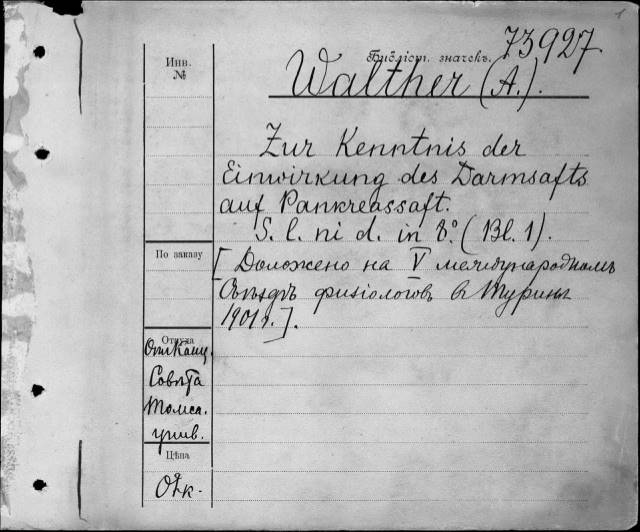 1
73927.
Библіот. значекъ.
Инв.
№
Walther (A.).
Zur Kenntnis der
Einwirkung des Darmsafts
auf Pankreassaft.
S. l. ni d. in 8º. (Bl. 1).
По заказу
[Доложено на V международномъ
Съѣздѣ физіологовъ в Туринѣ
1901 г.].
Откуда
Отъ Канц.
Совѣта
Томск.
унив.
Цѣна